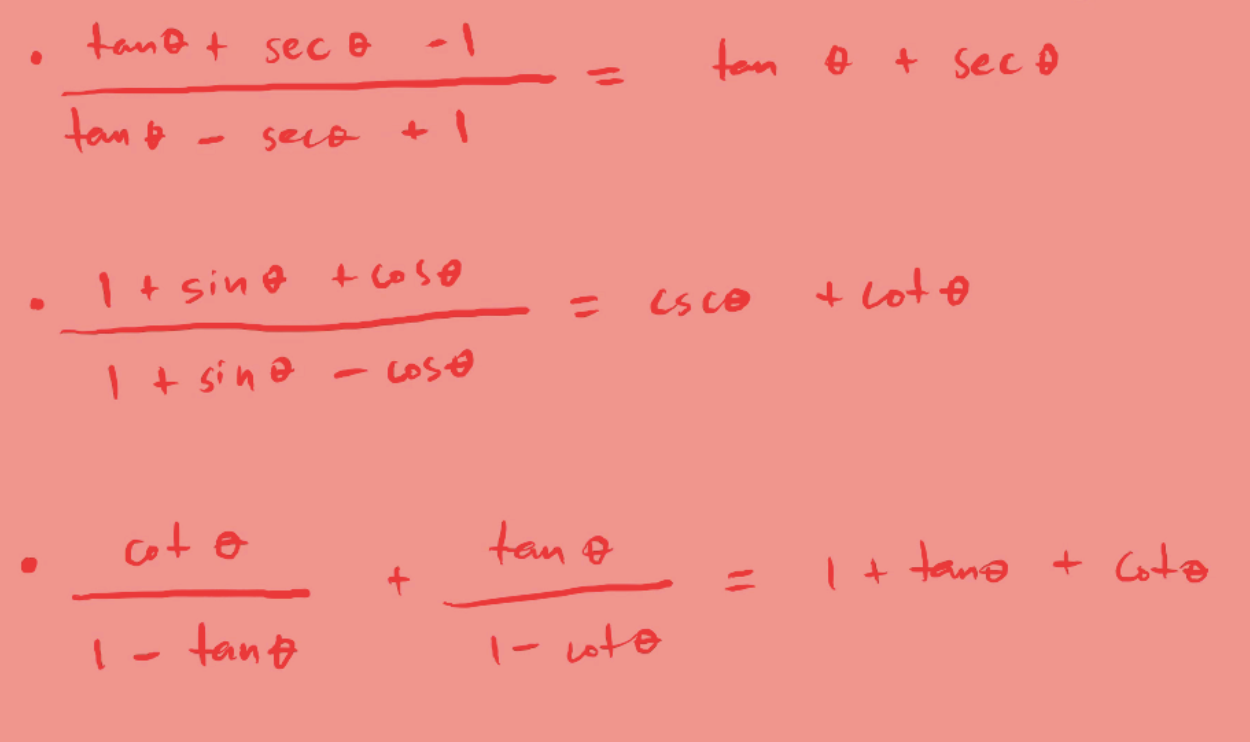 • (tanθ + sec θ - 1) / (tan θ - secθ + 1) = tan θ + sec θ
• (1 + sin θ + cosθ) / (1 + sin θ - cosθ) = cscθ + cot θ
• (cot θ) / (1 - tan θ) + (tan θ) / (1 - cot θ) = 1 + tanθ + cotθ